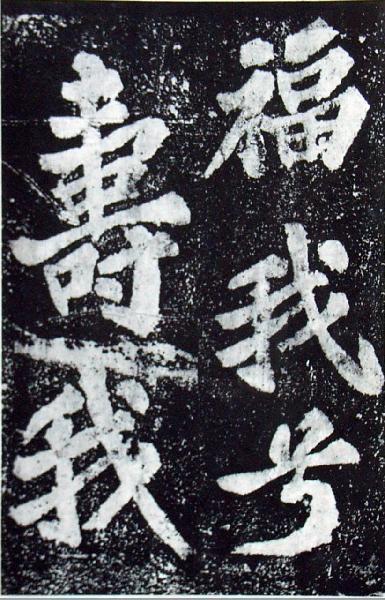 福我兮
壽我